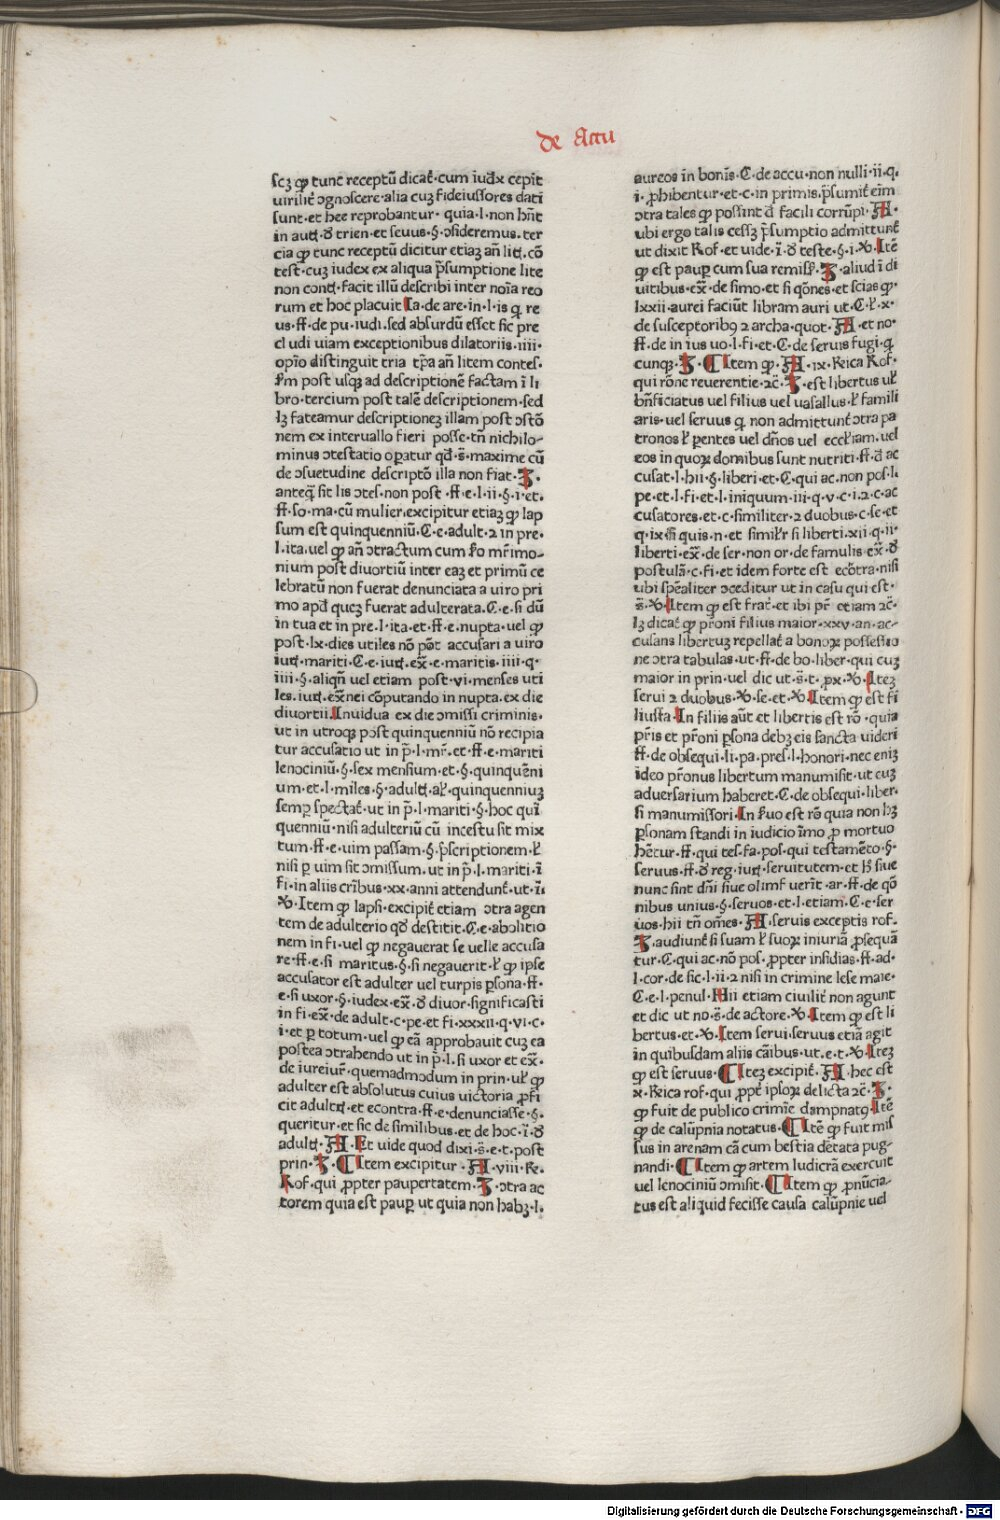 de Accu
scꝫ ꝙ tunc receptū dicat᷑·cum iudex cepit
uirilit᷑ ꝯgnoscere·alia cuꝫ fideiussores dati
sunt·et hee reprobantur·quia·l·non hn̄t
in autͥ·ꝺ trien·et seuus·§·ꝯsideremus·ter
cia ꝙ tunc receptū dicitur etiaꝫ an̄ litͥ·cō
test·cuꝫ iudex ex aliqua p̄sumptione lite
non contͥ·facit illū describi inter noīa reo
rum et hoc placuit Ia·de are·in·l·is q̄ re
us·ff·de pu·iudi·sed absurdū esset sic pre
cludi uiam exceptionibus dilatoriis·iiii·
opīo distinguit tria tꝑa an̄ litem contes·
ẜm post usqꝫ ad descriptionē factam ī li
bro·tercium post talē descriptionem·sed
lꝫ fateamur descriptioneꝫ illam post ꝯstō
nem ex interuallo fieri posse·tn̄ nichilo-
minus ꝯtestatio oꝑatur qđ·s̄·maxime cū
de ꝯsuetudine descriptō illa non fiat·B·
anteq̄ sit lis ꝯtes·non post·ff·e·l·ii·§·i·et·
ff·so·ma·cū mulier·excipitur etiaꝫ ꝙ lap
sum est quinquenniū·C·e·adult·2 in pre·
l·ita·uel ꝙ an̄ ꝯtractum cum ẜo mr̄imo-
nium post diuortiū inter eaꝫ et primū ce
lebratū non fuerat denunciata a uiro pri
mo apđ queꝫ fuerat adulterata·C·e·si dū
in tua et in pre·l·ita·et·ff·e·nupta·uel ꝙ
post·lx·dies utiles nō pōt accusari a uiro
iurͥ·mariti·C·e·iurͥ·ex̄·e·maritis·iiii·q·
iiii·§·aliqn̄ uel etiam post·vi·menses uti
les·iurͥ·ex̄nei cōputando in nupta·ex die
diuortii·Inuidua ex die ꝯmissi criminis·
ut in utroqꝫ post quinquenniū nō recipia
tur accusatio ut in p̄·l·mr̄·et·ff·e·mariti
lenociniū·§·sex mensium·et·§·quinquēni
um·et·l·miles·§·adultͥ·al᷑·quinquenniuꝫ
semꝑ spectat᷑·ut in p̄·l·mariti·§·hoc quī
quenniū·nisi adulteriū cū incestu sit mix
tum·ff·e·uim passam·§·p̄scriptionem·ł
nisi ꝑ uim sit ꝯmissum·ut in p̄·l·mariti·ī
fi·in aliis crībus·xx·anni attendunt᷑·ut·ī·
℣·Item ꝙ lapsi·excipit᷑ etiam ꝯtra agen
tem de adulterio qđ destitit·C·e·abolitio
nem in fi·uel ꝙ negauerat se uelle accusa
re·ff·e·si maritus·§·si negauerit·ł ꝙ ipse
accusator est adulter uel turpis ꝑsona·ff·
e·si uxor·§·iudex·ex̄·ꝺ diuor·significasti
in fi·ex̄·de adult·c·pe·et fi·xxxii·q·vi·c·
i·et ꝑ totum·uel ꝙ eā approbauit cuꝫ ea
postea ꝯtrahendo ut in p̄·l·si uxor et ex̄·
de iureiur̄·quemadmodum in prin·uł ꝙ
adulter est absolutus cuius uictoria ꝓfi
cit adultͥ·et econtra·ff·e·denunciasse·§·
queritur·et sic de similibus·et de hoc·ī·ꝺ
adultͥ·A·Et uide quod dixi·s̄·e·t·post
prin·B·C Item excipitur·A·viii·Re·
Rof·qui ꝓpter paupertatem·B·ꝯtra ac
torem quia est pauꝑ ut quia non habꝫ·l·
aureos in bonīs·C·de accu·non nulli·ii·q·
i·ꝓhibentur·et·c·in primis·p̄sumit᷑ eīm
ꝯtra tales ꝙ possint đ facili corrūpi·A·
ubi ergo talis cessꝫ p̄sumptio admittunt᷑
ut dixit Rof·et uide·ī·ꝺ teste·§·i·℣·Itē
ꝙ est pauꝑ cum sua remiss̄·B·aliud ī di
uitibus·ex̄·de simo·et si qōnes·et scias ꝙ·
lxxii·aurei faciūt libram auri ut·C·ł·x·
de susceptoribꝰ 2 archa·quot·A·et no·
ff·de in ius uo·l·fi·et·C·de seruis fugi·q̄
cunqꝫ·B·C Item ꝙ·A·ix·Reica Rof·
qui rōne reuerentie·2c̄·B·est libertus uł
bn̄ficiatus uel filius uel uasallus·ł famili
aris·uel seruus q̄ non admittunt᷑ ꝯtra pa
tronos ł pentes uel dn̄os uel eccłiam·uel
eos in quoꝝ domibus sunt nutriti·ff·đ ac
cusat·l·hii·§·liberi·et·C·qui ac·non pos·l·
pe·et·l·fi·et·l·iniquum·iii·q·v·c·i·2·c·ac
cusatores·et·c·similiter·2 duobus·c·se·et
q·ix·ss̄ quis·n·et simił si liberti·xii·q·ii·
liberti·ex̄·de ser·non or·de famulis·ex̄·ꝺ
postulā·c·fi·et idem forte est ecōtra·nisi
ubi spēaliter ꝯceditur ut in casu qui est·
s̄·℣·Item ꝙ est frat᷑·et ibi pr̄ etiam 2c̄·
lꝫ dicat᷑ ꝙ pr̄oni filius maior·xxv·an·ac-
cusans libertuꝫ repellat᷑ a bonoꝝ possessio
ne ꝯtra tabulas·ut·ff·de bo·liber·qui cuꝫ
maior in prin·uel dic ut·s̄·t·ꝓx·℣·Iteꝫ
serui 2 duobus·℣·se·et·℣·Item ꝙ est fi
liusfa·In filiis aūt et libertis est rō·quia
pr̄is et pr̄oni ꝑsona debꝫ eis sancta uideri
ff·de obsequi·li·pa·pres·l·honori·nec eniꝫ
ideo pr̄onus libertum manumisit·ut cuꝫ
aduersarium haberet·C·de obsequi·liber·
si manumissori·In ẜuo est rō quia non hꝫ
ꝑsonam standi in iudicio īmo ꝓ mortuo
hētur·ff·qui tes·fa·pos·qui testamēto·§·
seruus·ff·ꝺ reg·iurͥ·seruitutem·et hͥ siue
nunc sint dn̄i siue olim fuerīt·ar·ff·de qō
nibus unius·§·seruos·et·l·etiam·C·e·ser
uos·hii tn̄ om̄es·A·seruis exceptis rof·
B·audiunt᷑ si suam ł suoꝝ iniuriā ꝓsequā
tur·C·qui ac·nō pos·ꝓpter insidias·ff·ad·
l·cor·de sic·l·ii·2 nisi in crimine lese maie·
C·e·l·penul·Hii etiam ciuilit᷑ non agunt
et dic ut no·s̄·de actore·℣·Item ꝙ est li
bertus·et·℣·Item serui·seruus etiā agit
in quibusdam aliis cāibus·ut·e·t·℣·Iteꝫ
ꝙ est seruus·C Iteꝫ excipit᷑·A·hec est
x·Reica rof·qui ꝓpt᷑ ipsoꝝ delicta 2c̄·B·
ꝙ fuit de publico crimīe dampnatꝰ·Itē
ꝙ de calūpnia notatus·C Itē ꝙ fuit mis
sus in arenam cā cum bestia dētata pug-
nandi·C Item ꝙ artem ludicrā exercuit
uel lenociniū ꝯmisit·C Item ꝙ ꝓnūcia-
tus est aliquid fecisse causa calūpnie uel
Digitalisierung gefördert durch die Deutsche Forschungsgemeinschaft - DFG